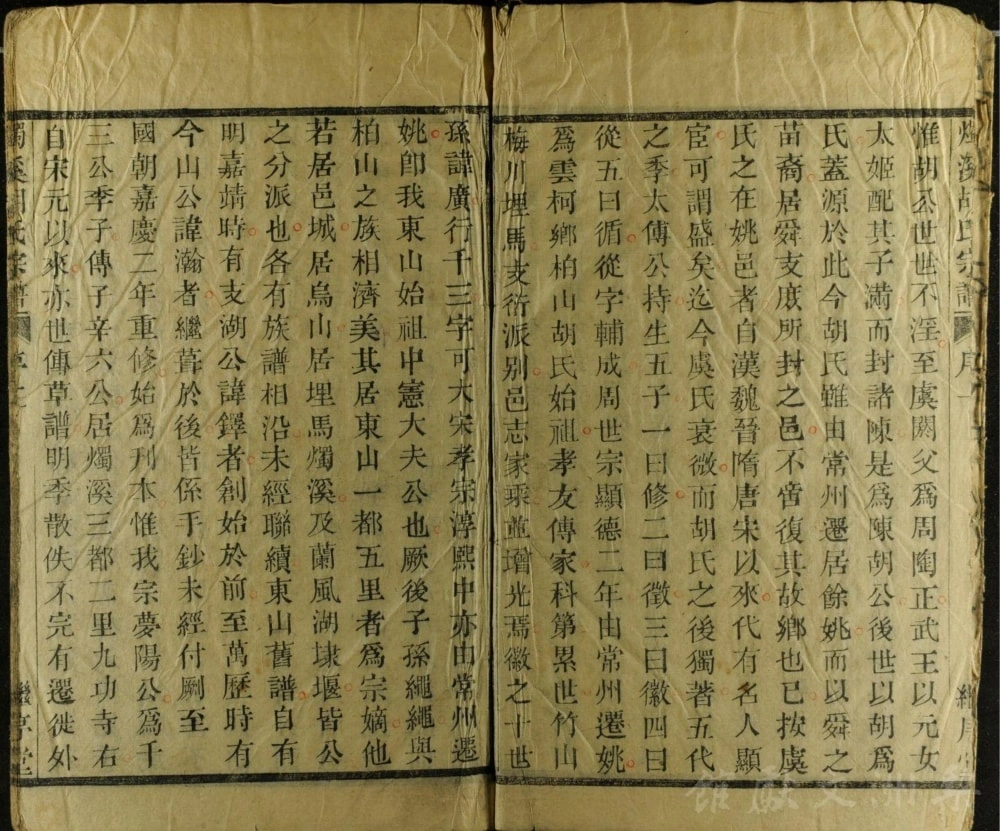 燭溪胡氏宗譜 序 一
惟胡公世世不淫至虞閼父爲周陶正武王以元女
太姬配其子滿而封諸陳是爲陳胡公後世以胡爲
氏蓋源於此今胡氏雖由常州遷居餘姚而以舜之
苗裔居舜支庶所封之邑不啻復其故鄉也已按虞
氏之在姚邑者自漢魏晉隋唐宋以來代有名人顯
宦可謂盛矣迄今虞氏衰微而胡氏之後獨著五代
之季太傅公持生五子一曰修二曰徵三曰徽四曰
從五曰循從字輔成周世宗顯德二年由常州遷姚
爲雲柯鄉柏山胡氏始祖孝友傳家科第累世竹山
梅川埋馬支衍派别邑志家乘並增光焉徽之十世
孫諱廣行千三字可大宋孝宗淳熙中亦由常州遷
姚卽我東山始祖中憲大夫公也厥後子孫繩繩與
柏山之族相濟美其居東山一都五里者爲宗嫡他
若居邑城居烏山居埋馬燭溪及蘭風湖堘堰皆公
之分派也各有族譜相沿未經聯續東山舊譜自有
明嘉靖時有支湖公諱鐸者創始於前至萬歷時有
今山公諱瀚者繼葺於後皆係手鈔未經付劂至
國朝嘉慶二年重修始爲刊本惟我宗夢陽公爲千
三公季子傳子辛六公居燭溪三都二里九功寺右
自宋元以來亦世傳草譜明季散佚不完有遷徙外